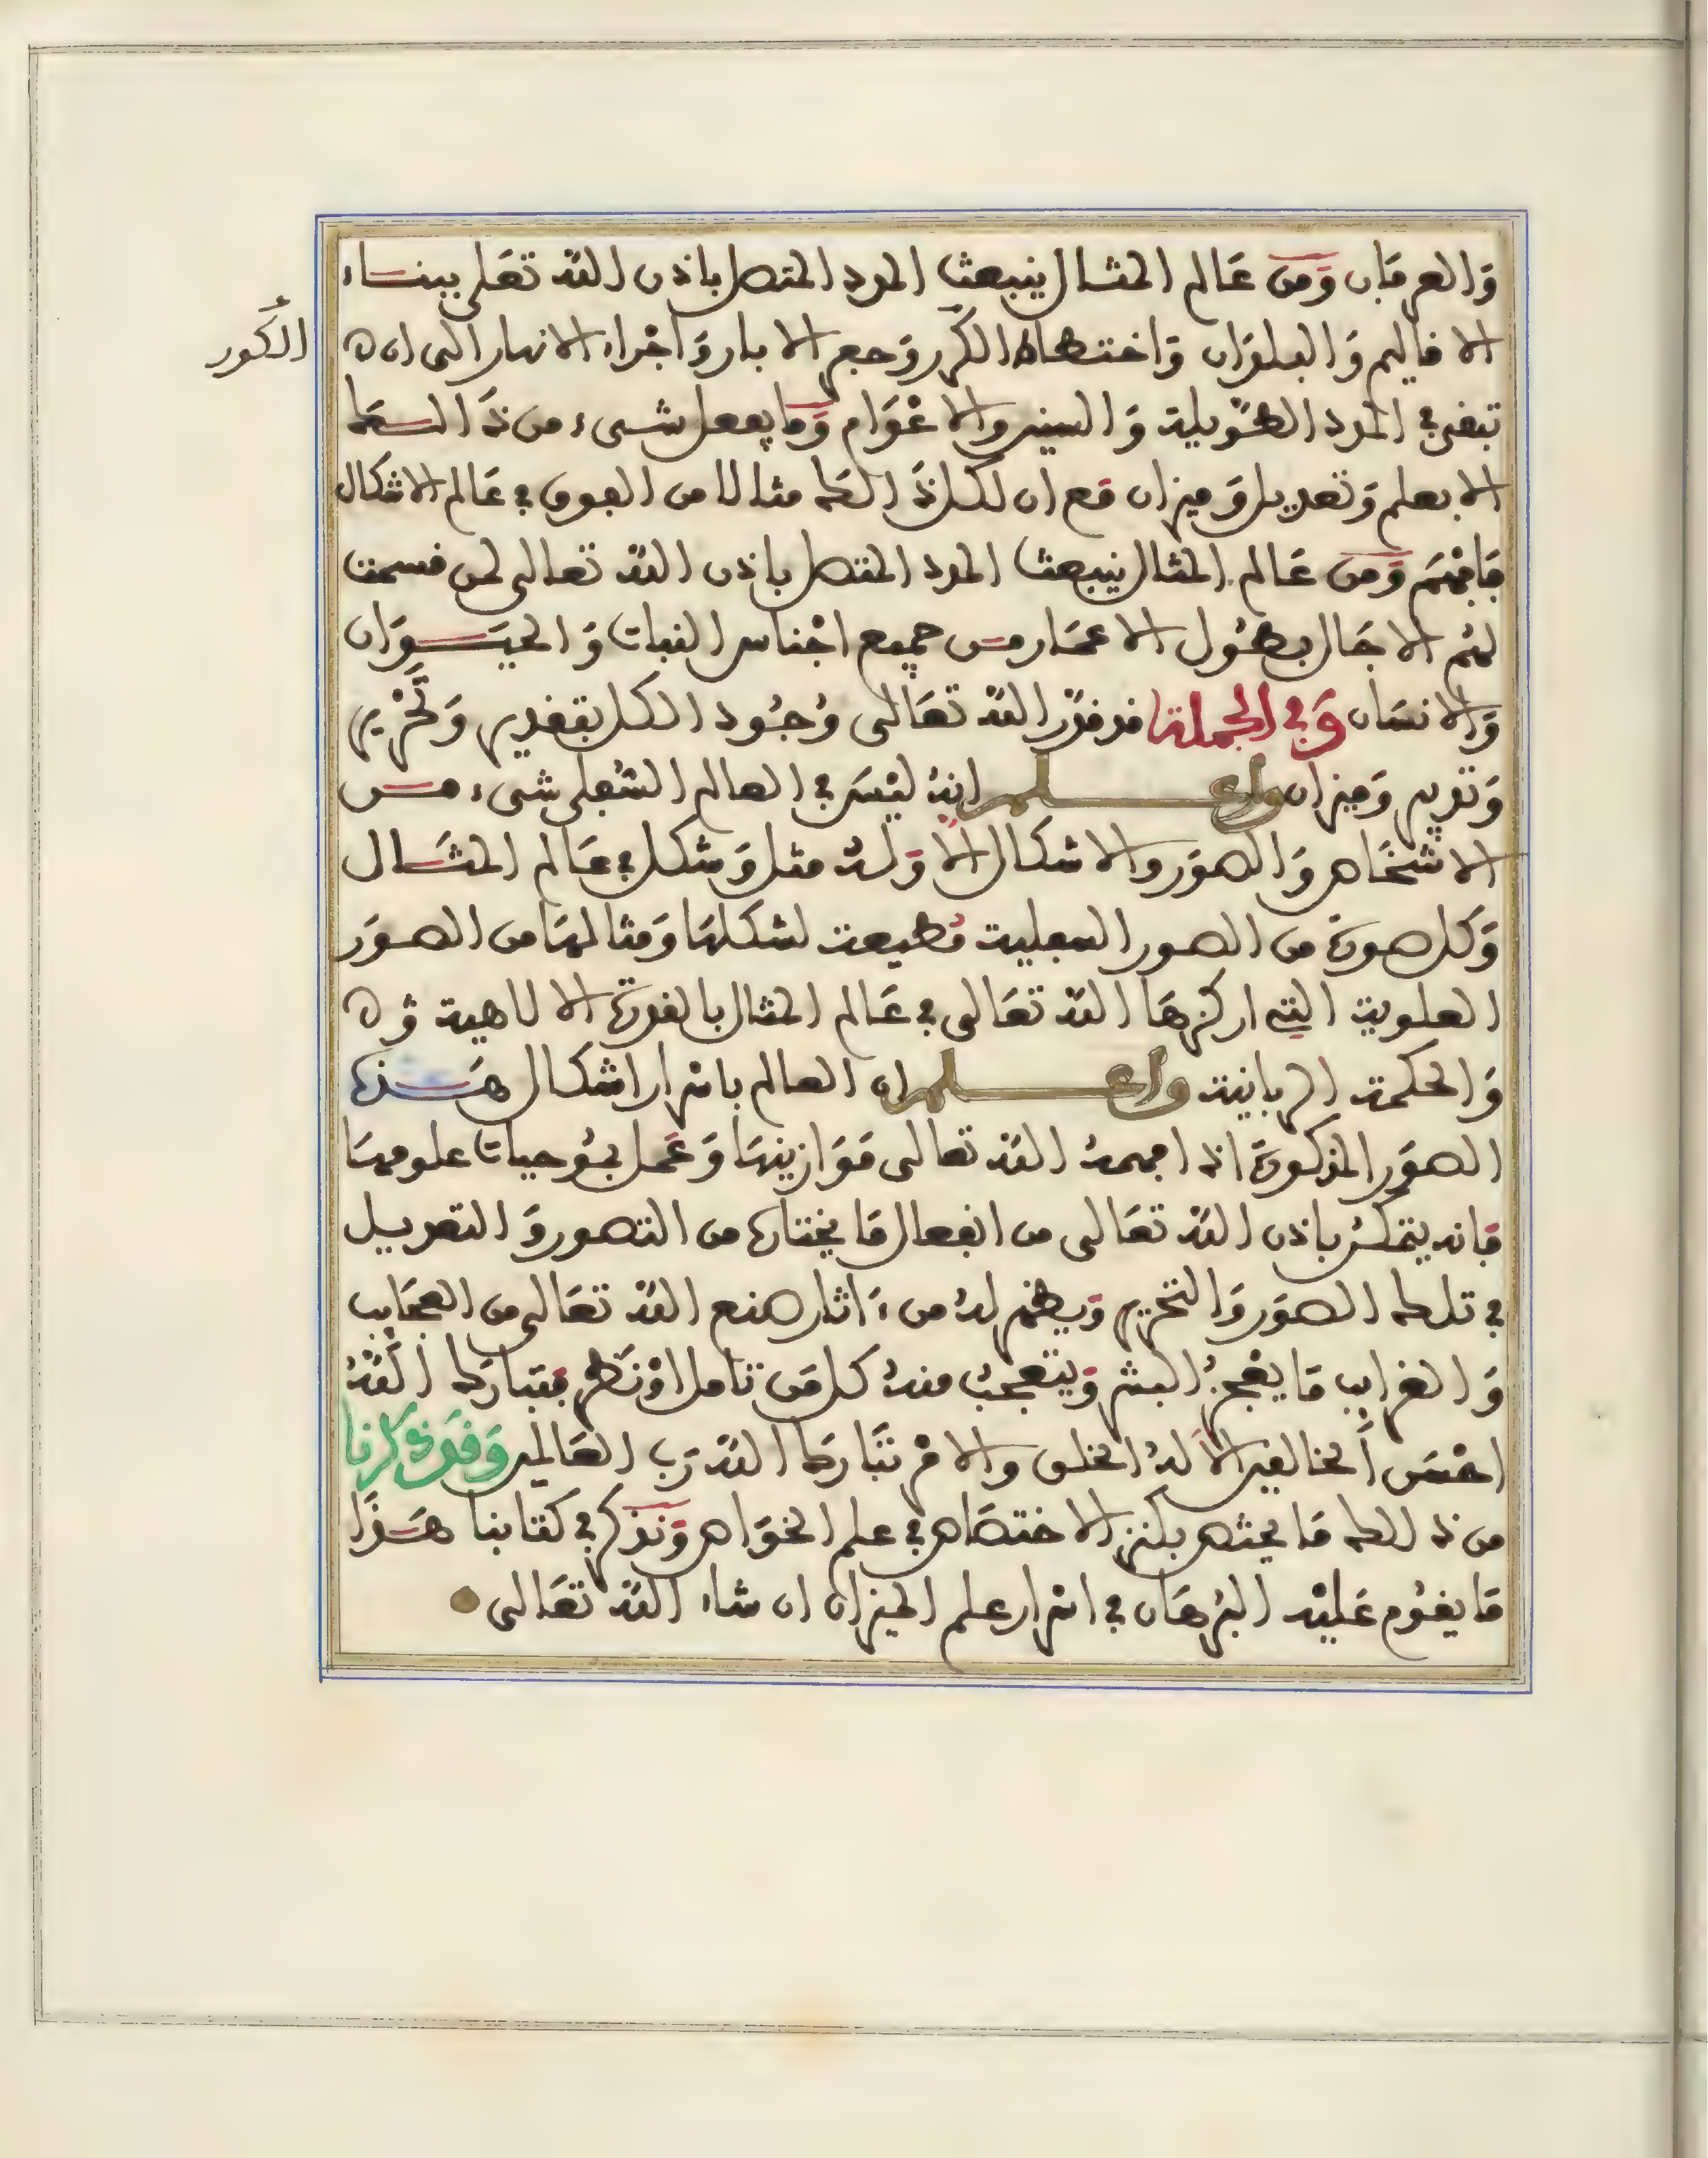 وَالعرفان وَمن عَالم المثال ينبعث المدد المتصل باذن الله تعَلى ببنساء
الاقاليم وَالبلدَان وَاختطاط الكور وَحفر الابار وَاجْراء الانهار الى ان
الكُور
تبقى في المدد الطّويلة وَالسنين والاعْوَام وَما يفعل شىء من ذَالكَ
الا بعلم وَتعديل وَميزان مَع ان لكل ذَالكَ مثالا من الفوق في عَالم الاشكال
فَافهَم وَمن عَالم المثال ينبعث المدد المتصل باذن الله تعالى لمن قسمت
لهُم الاجَال بطُول الاعمَار من جميع اجْناس النبات وَالحيَوَان
وَالانسَان وَفي الجملة قد قدّر الله تعَالى وُجُود الكل بتقدير وَتَحْرير
وَتدبير وَميزان واعلم انهُ ليْسَ في العالم السُفلى شىء من
الاشخَاص وَالصوَر والاشكال الا وَلهُ مثل وَشكل في عَالم المثَال
وَكل صورة من الصور السفلية مُطيعة لشكلهَا وَمثالهَا من الصوَر
العلوية التي اركزهَا الله تعَالى في عَالم المثال بالقوة الالاهية وَ
وَالحكمة الربانية واعلم ان العالم باسْرار اشكال هَذه
الصوَر المذكورة اذا افهمهُ الله تعالى مَوَازينهَا وَعَمل بمُوجبات علومهَا
فَانه يتمكنُ باذن الله تعَالى من انفعال مَا يختاره من التصور وَالتعديل
في تلك الصوَر وَالتحرير وَيظهر لهُ من ءَاثار صنع الله تعَالى من العجَايب
وَالغرايب مَا يعْجزُ البشر وَيتعجبُ منهُ كل مَن تامل اوْ نَظر فتبارَك اللهُ
احْسَن الخالقين الا لهُ الخلق والامْر تبَارك الله رَب العَالمين وَقد ذكرنا
من ذالك مَا يختص بكنز الاختصَاص في علم الخوَاص وَنذكر في كتابنا هَذَا
مَا يقُوم عَليْه البُرهَان في اسْرار علم الميزان ان شاء الله تعَالى